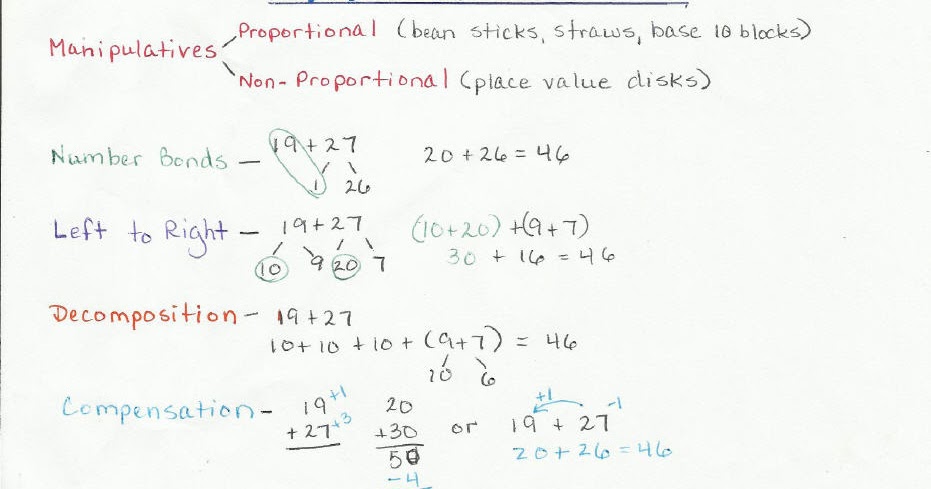 Proportional (bean sticks, straws, base 10 blocks)
Manipulatives
Non-Proportional (place value disks)
Number Bonds — 19 + 27 20 + 26 = 46
1 26
Left to Right — 19 + 27 (10+20) + (9+7)
10 9 20 7 30 + 16 = 46
Decomposition - 19 + 27
10 + 10 + 10 + (9+7) = 46
10 6
Compensation - 19 +1 20 or 19 +1 + 27 -1
+ 27 +3 +30 20 + 26 = 46
50
-4